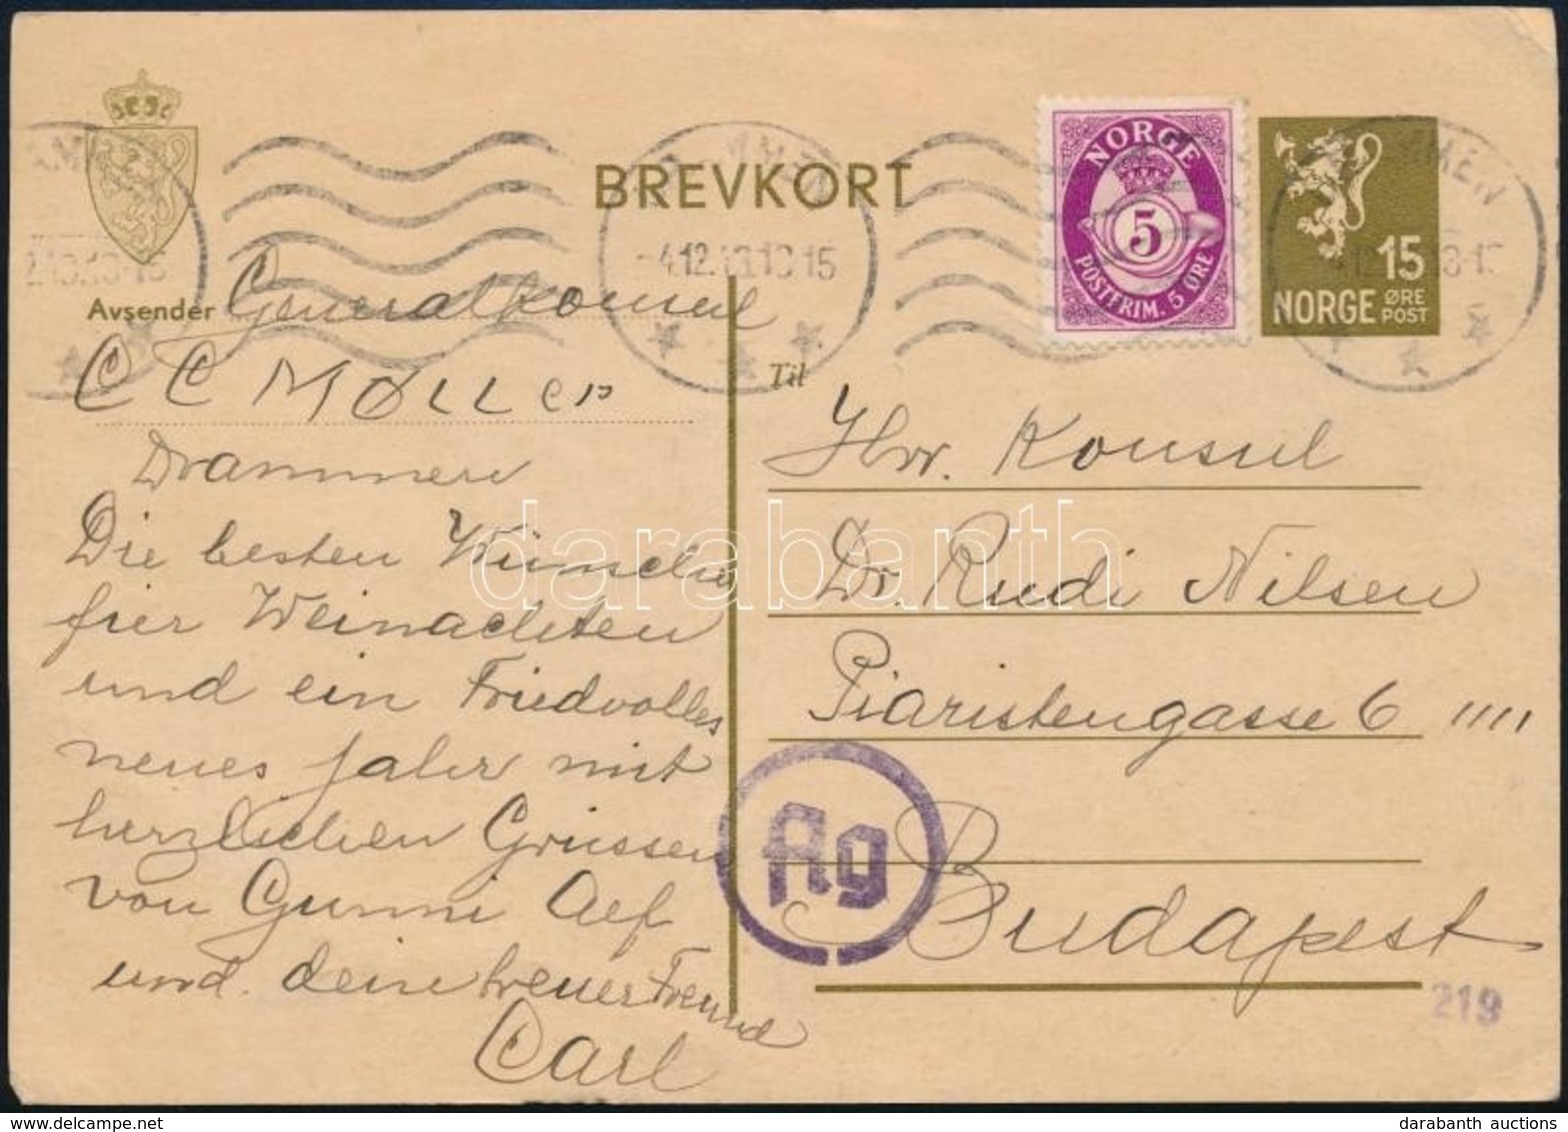 BREVKORT
NORGE
5
POSTFRIM. 5 ØRE
15
NORGE ØRE POST
-4.12.
13 15
Avsender Generalkonsul
C C MØLLER
Drammen
Die besten Wünsche
fier Weinachten
und ein Friedvolles
neues Jahr mit
herzlichen Grüssen
von Gunni Alf
und dein treuer Freund
Carl
Til
Hrr. Konsul
Dr. Rudi Nilsen
Piaristengasse 6 IIII
Budapest
Ag
219
darabanth
darabanth auctions